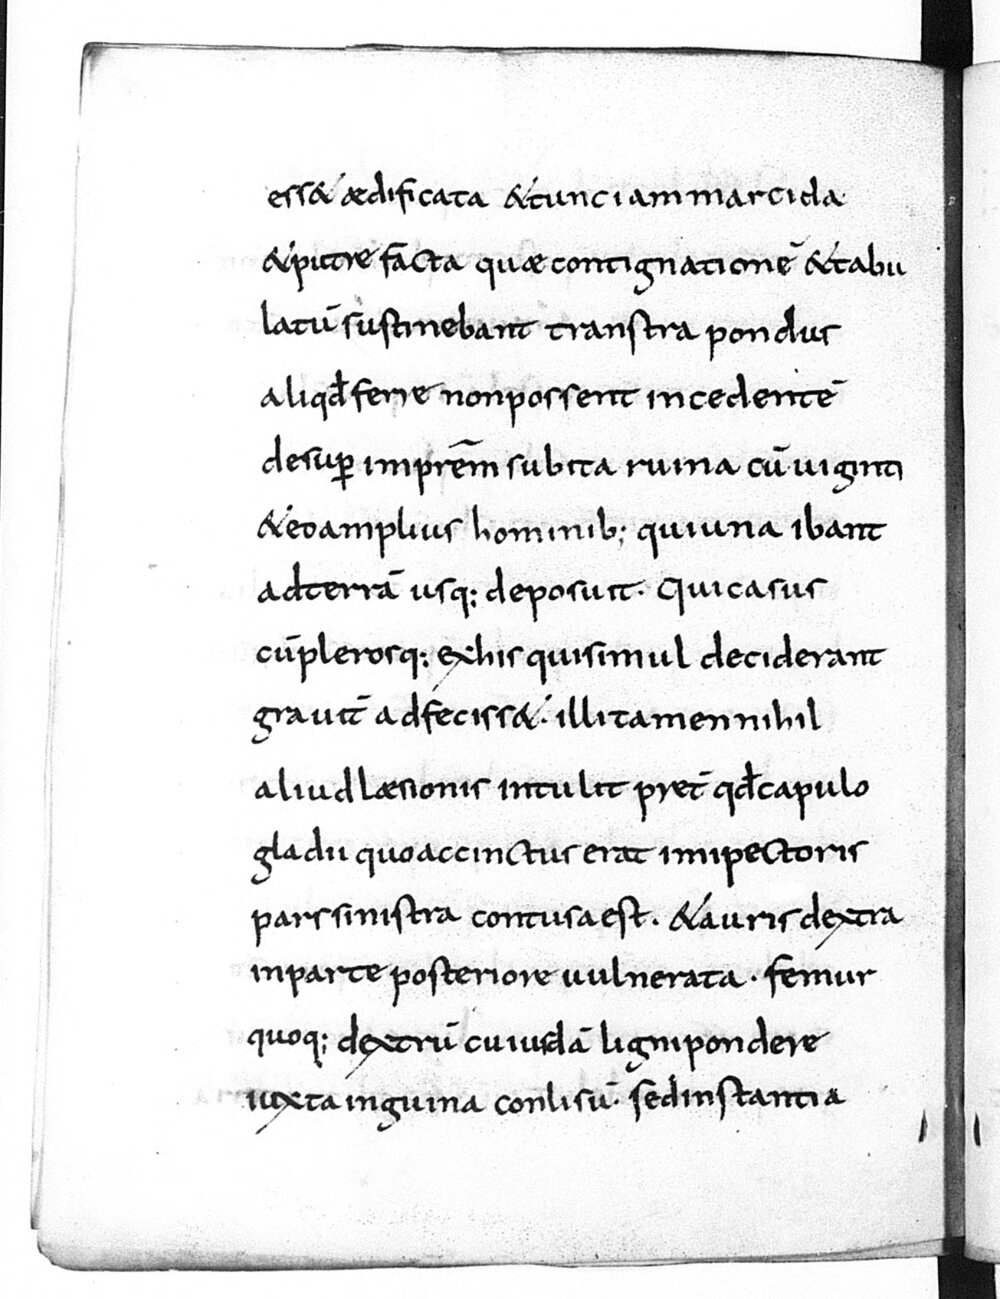 ess& ædificata &tunc iam marcida
&putre facta quæ contignationē &tabu
latū sustinebant transtra pondus
aliqđ ferre non possent incedentē
desuꝑ imprēm subita ruina cū uiginti
&eo amplius hominib; qui una ibant
ad terrā usq; deposuit. Qui casus
cū plerosq; ex his qui simul deciderant
grauit̄ adfeciss&. illi tamen nihil
aliud læsionis intulit pret̄ qđ capulo
gladii quo accinctus erat imi pectoris
pars sinistra contusa est. &auris dextra
in parte posteriore uulnerata. femur
quoq; dextrū cuiusdā ligni pondere
iuxta inguina conlisū. sed instantia